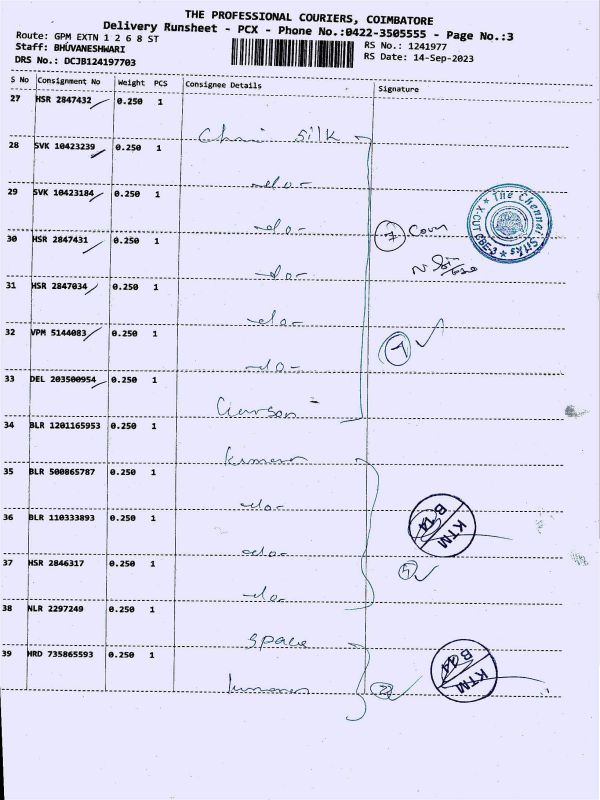 THE PROFESSIONAL COURIERS, COIMBATORE
Delivery Runsheet - PCX - Phone No.:0422-3505555 - Page No.:3
Route: GPM EXTN 1 2 6 8 ST
RS No.: 1241977
Staff: BHUVANESHWARI
RS Date: 14-Sep-2023
DRS No.: DCJB124197703
S No Consignment No Weight PCS Consignee Details Signature
27 HSR 2847432 0.250 1
Chai Silk
28 SVK 10423239 0.250 1
-do-
29 SVK 10423184 0.250 1
-do-
7
The Chennai Silks ★ X-CUT CBE-3 ★
30 HSR 2847431 0.250 1
-do-
31 HSR 2847034 0.250 1
-do-
32 VPM 5144083 0.250 1
7
-do-
33 DEL 203500954 0.250 1
34 BLR 1201165953 0.250 1
35 BLR 500865787 0.250 1
-do-
36 BLR 110333893 0.250 1
KTM
-do-
37 HSR 2846317 0.250 1
5
-do-
38 NLR 2297249 0.250 1
space
39 HRD 735865593 0.250 1
KTM
2